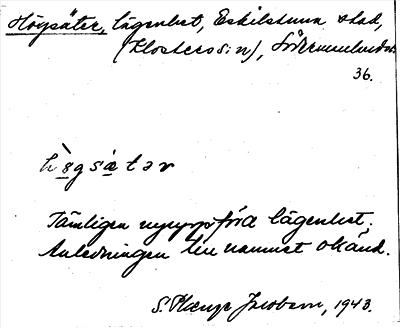 Högsäter, lägenhet, Eskilstuna stad,
(Klosters sn), Södermanland
36.
hògsà̤tər
Tämligen nyuppförd lägenhet.
Anledningen till namnet okänd.
S. Jacobson, 1943.